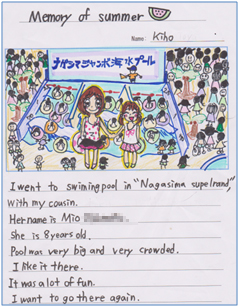 Memory of summer
Name: Kiho
ナガシマジャンボ海水プール
I went to swiming pool in "Nagasima supelrand",
with my cousin.
Her name is Mio
She is 8 years old.
Pool was very big and very crowded.
I like it there.
It was a lot of fun.
I want to go there again.